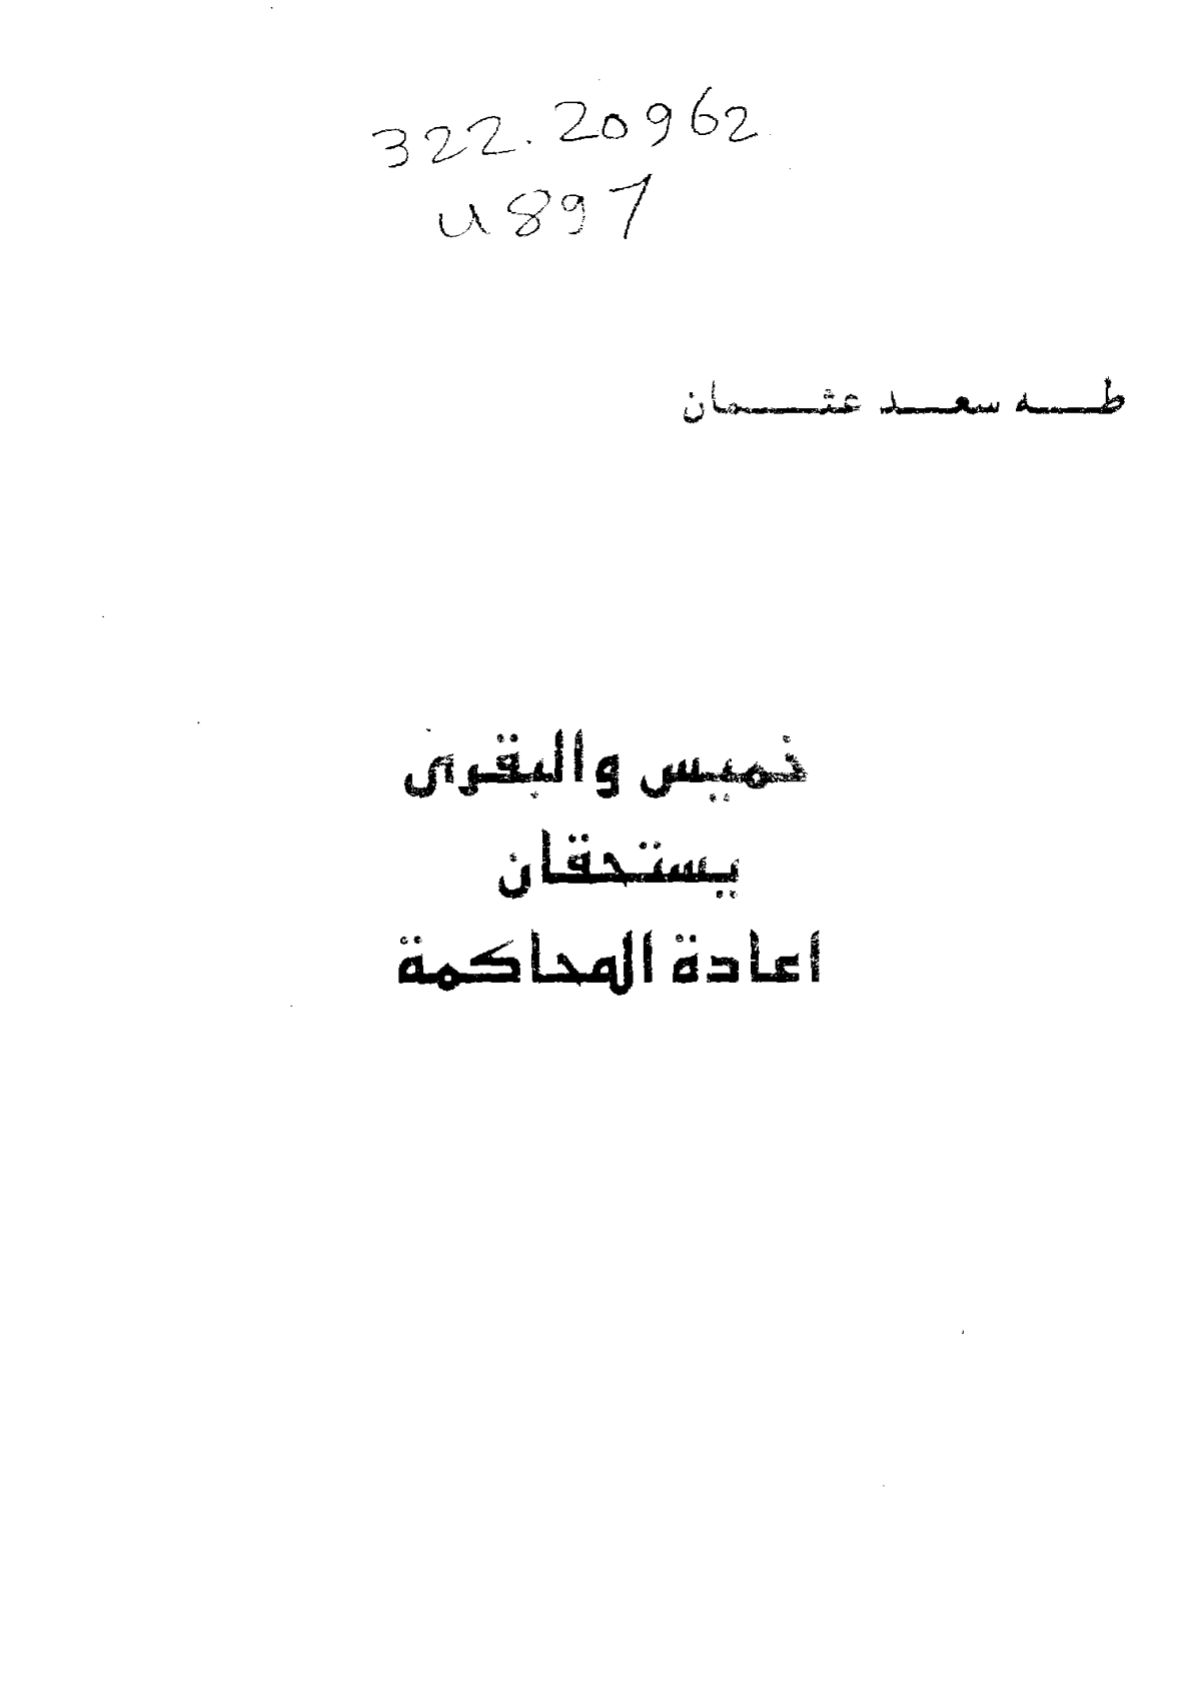 322.20962
U897
طه سعد عثمان
خميس والبقرى
يستحقان
اعادة المحاكمة